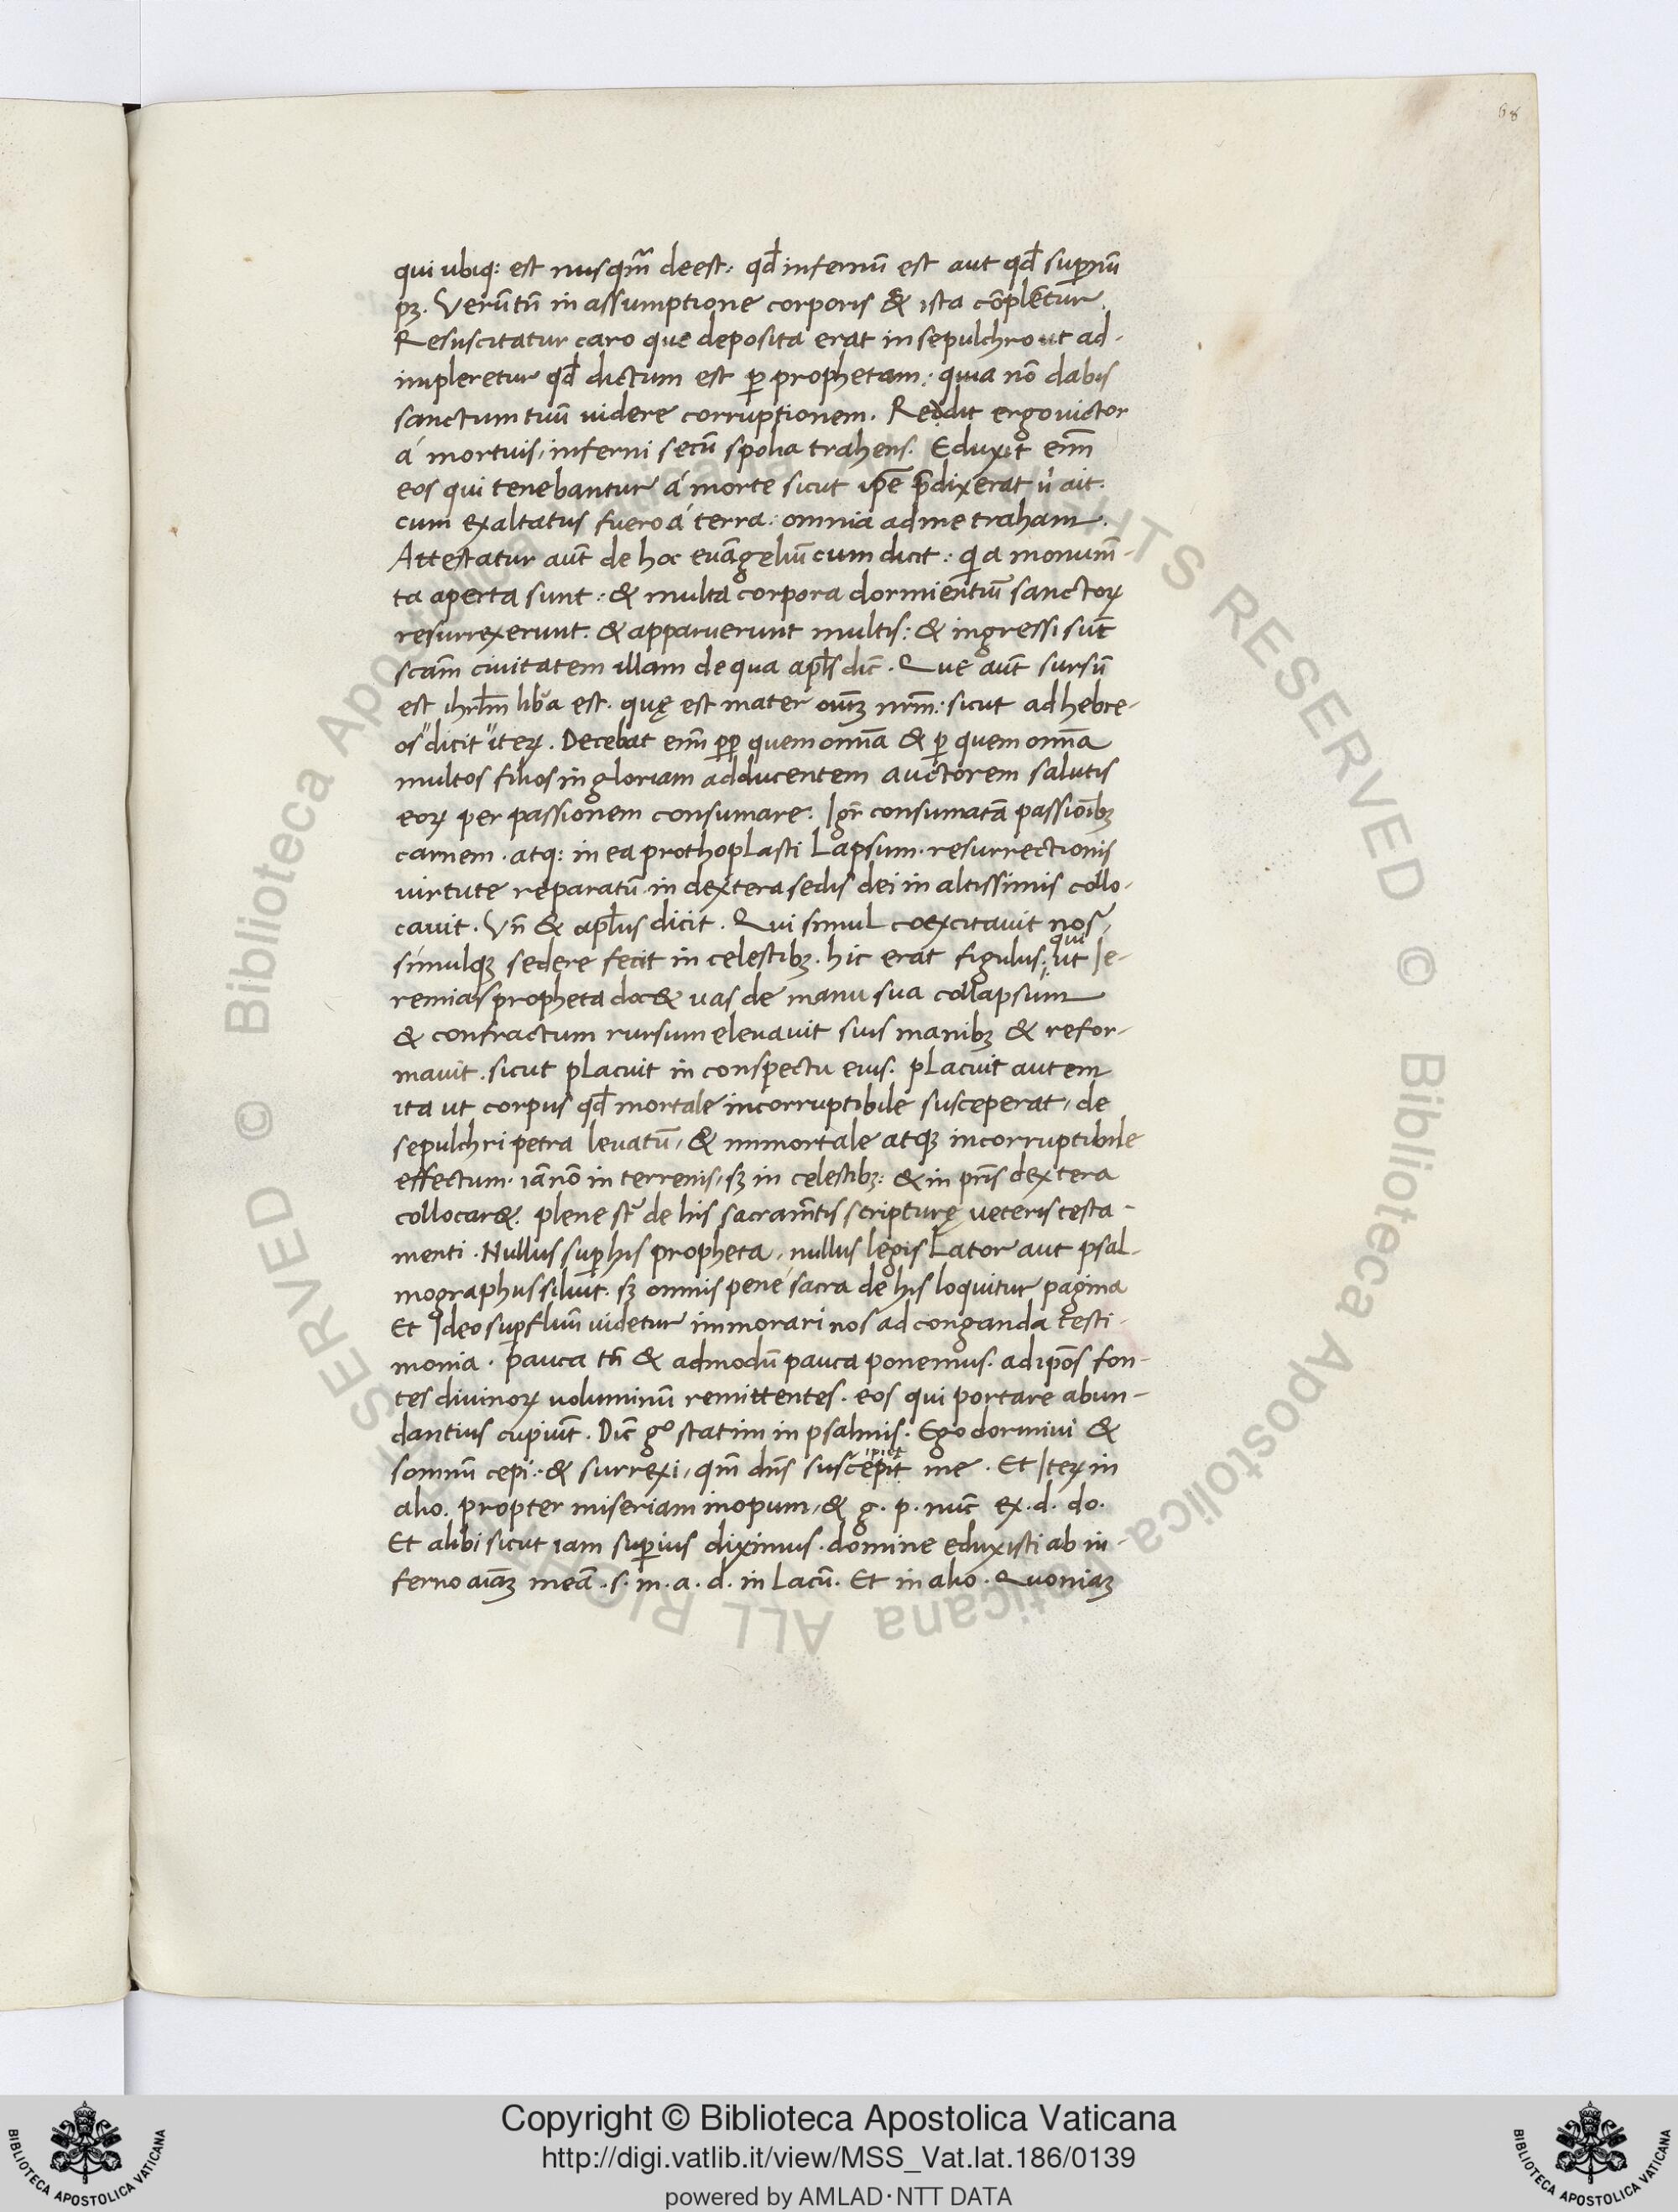 68
qui ubiq: est nusq̃m deest. qd̃ infernũ est aut qd̃ sup̱nũ
pꝫ. Verũtñ in assumptione corporis & ista cõpletur.
Resuscitatur caro que deposita erat in sepulchro ut ad-
impleretur qd̃ dictum est ꝑ prophetam: quia nõ dabis
sanctum tuũ uidere corruptionem. Redit ergo uictor
á mortuis, inferni secũ spolia trahens. Eduxit em̃
eos qui tenebantur á morte sicut ip̃e p̃dixerat ů ait.
cum exaltatus fuero á terra: omnia ad me traham.
Attestatur aut̃ de hoc euãgeliũ cum dicit: q a monum̃-
ta aperta sunt: & multa corpora dormientiũ sanctoꝝ
resurrexerunt. & apparuerunt multis: & ingressi sũt
scam̃ ciuitatem illam de qua apl̃s dic̃. Que aut̃ sursũ
est ihrl̃m lib̃a est. quę est mater om̃ꝫ nrm̃: sicut ad hebre-
os" dicit "iteꝝ. Decebat em̃ ꝑꝑ quem om̃a & ꝑ quem om̃a
multos filios in gloriam adducentem auctorem salutis
eoꝝ per passionem consumare. Igr̃ consumatã passioĩbꝫ
carnem. atq: in ea prothoplasti lapsum. resurrectionis
uirtute reparatũ in dextera sedis dei in altissimis collo-
cauit. Vñ & apl̃us dicit. Qui simul coexcitauit nos,
simulqꝫ sedere fecit in celestibꝫ. hic erat figulus: qui ut Ie-
remias propheta doc& uas de manu sua collapsum
& confractum rursum eleuauit suis manibꝫ & refor-
mauit. sicut placuit in conspectu eius. placuit autem
ita ut corpus qd̃ mortale incorruptibile susceperat, de
sepulchri petra leuatũ, & immortale atqꝫ incorruptibile
effectum. iã nõ in terrenis, sꝫ in celestibꝫ: & in pr̃is dextera
collocar&. plene st̃ de his sacram̃tis scripturę ueteris testa-
menti. Nullus suꝑ his propheta, nullus legis lator aut psal-
mographus siluit. sꝫ omnis pené sacra de his loquitur pagina
Et Ideo suꝑfluũ uidetur immorari nos ad conganda testi-
monia. pauca tñ & admodũ pauca ponemus. ad ip̃os fon-
tes diuinoꝝ uoluminũ remittentes. eos qui portare abun-
dantius cupiũt. Dic̃ gº statim in psalmis. Ego dormiui &
somnũ cepi: & surrexi, qm̃ dñs suscepit ipiet me. Et Iteꝝ in
alio. propter miseriam inopum, & g. p. nũc ex. d. do.
Et alibi sicut iam suꝑius diximus. domine eduxisti ab in-
ferno aiãꝫ meã. s. m. a. d. in lacũ. Et in alio. Quoniaꝫ
Copyright © Biblioteca Apostolica Vaticana
http://digi.vatlib.it/view/MSS_Vat.lat.186/0139
powered by AMLAD·NTT DATA